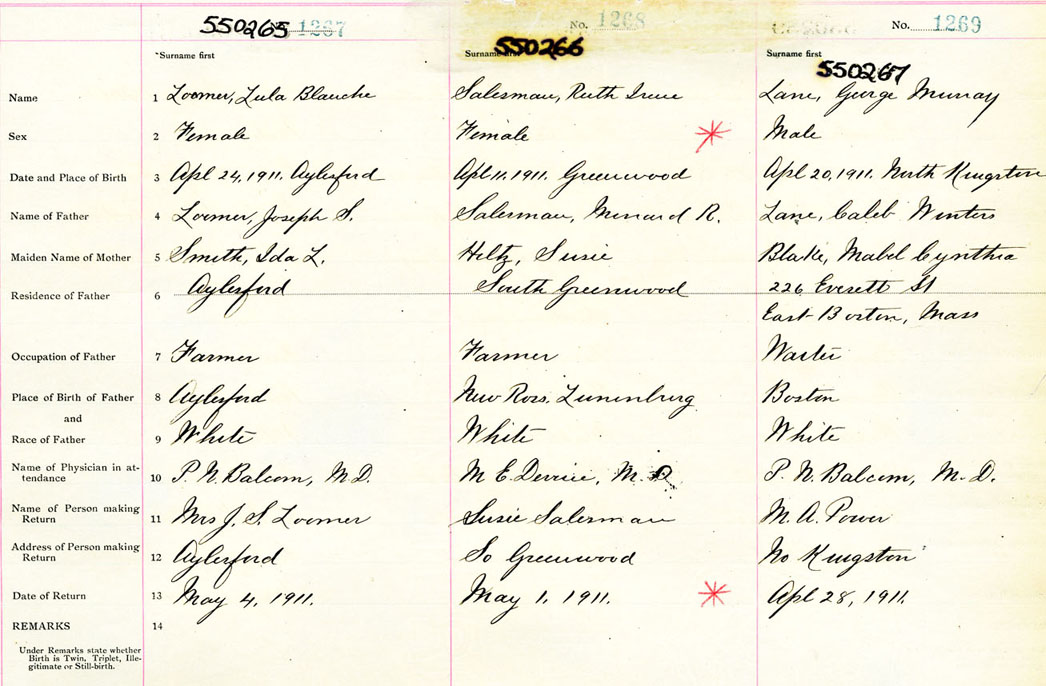 550265 1267 No. 1268 No. 1269
*Surname first Surname first Surname first
550266 550267
Name 1 Loomer, Lula Blanche Salesman, Ruth Irene Lane, George Murray
Sex 2 Female Female Male
Date and Place of Birth 3 Apl 24, 1911. Aylesford Apl 11. 1911. Greenwood Apl 20, 1911. North Kingston
Name of Father 4 Loomer, Joseph S. Salesman, Menard R. Lane, Caleb Winters
Maiden Name of Mother 5 Smith, Ida L. Hiltz, Susie Blake, Mabel Cynthia
Residence of Father 6 Aylesford South Greenwood 226 Everett St
East Boston, Mass
Occupation of Father 7 Farmer Farmer
Place of Birth of Father 8 Aylesford New Ross, Lunenburg Boston
and
Race of Father 9 White White White
Name of Physician in at-
tendance 10 P. N. Balcom, M.D. M E M.D P. N. Balcom, M.D.
Name of Person making
Return 11 Mrs J. S. Loomer Susie Salesman M. A. Power
Address of Person making
Return 12 Aylesford So Greenwood No Kingston
Date of Return 13 May 4, 1911. May 1. 1911. Apl 28, 1911.
REMARKS 14
Under Remarks state whether
Birth is Twin, Triplet, Ille-
gitimate or Still-birth.